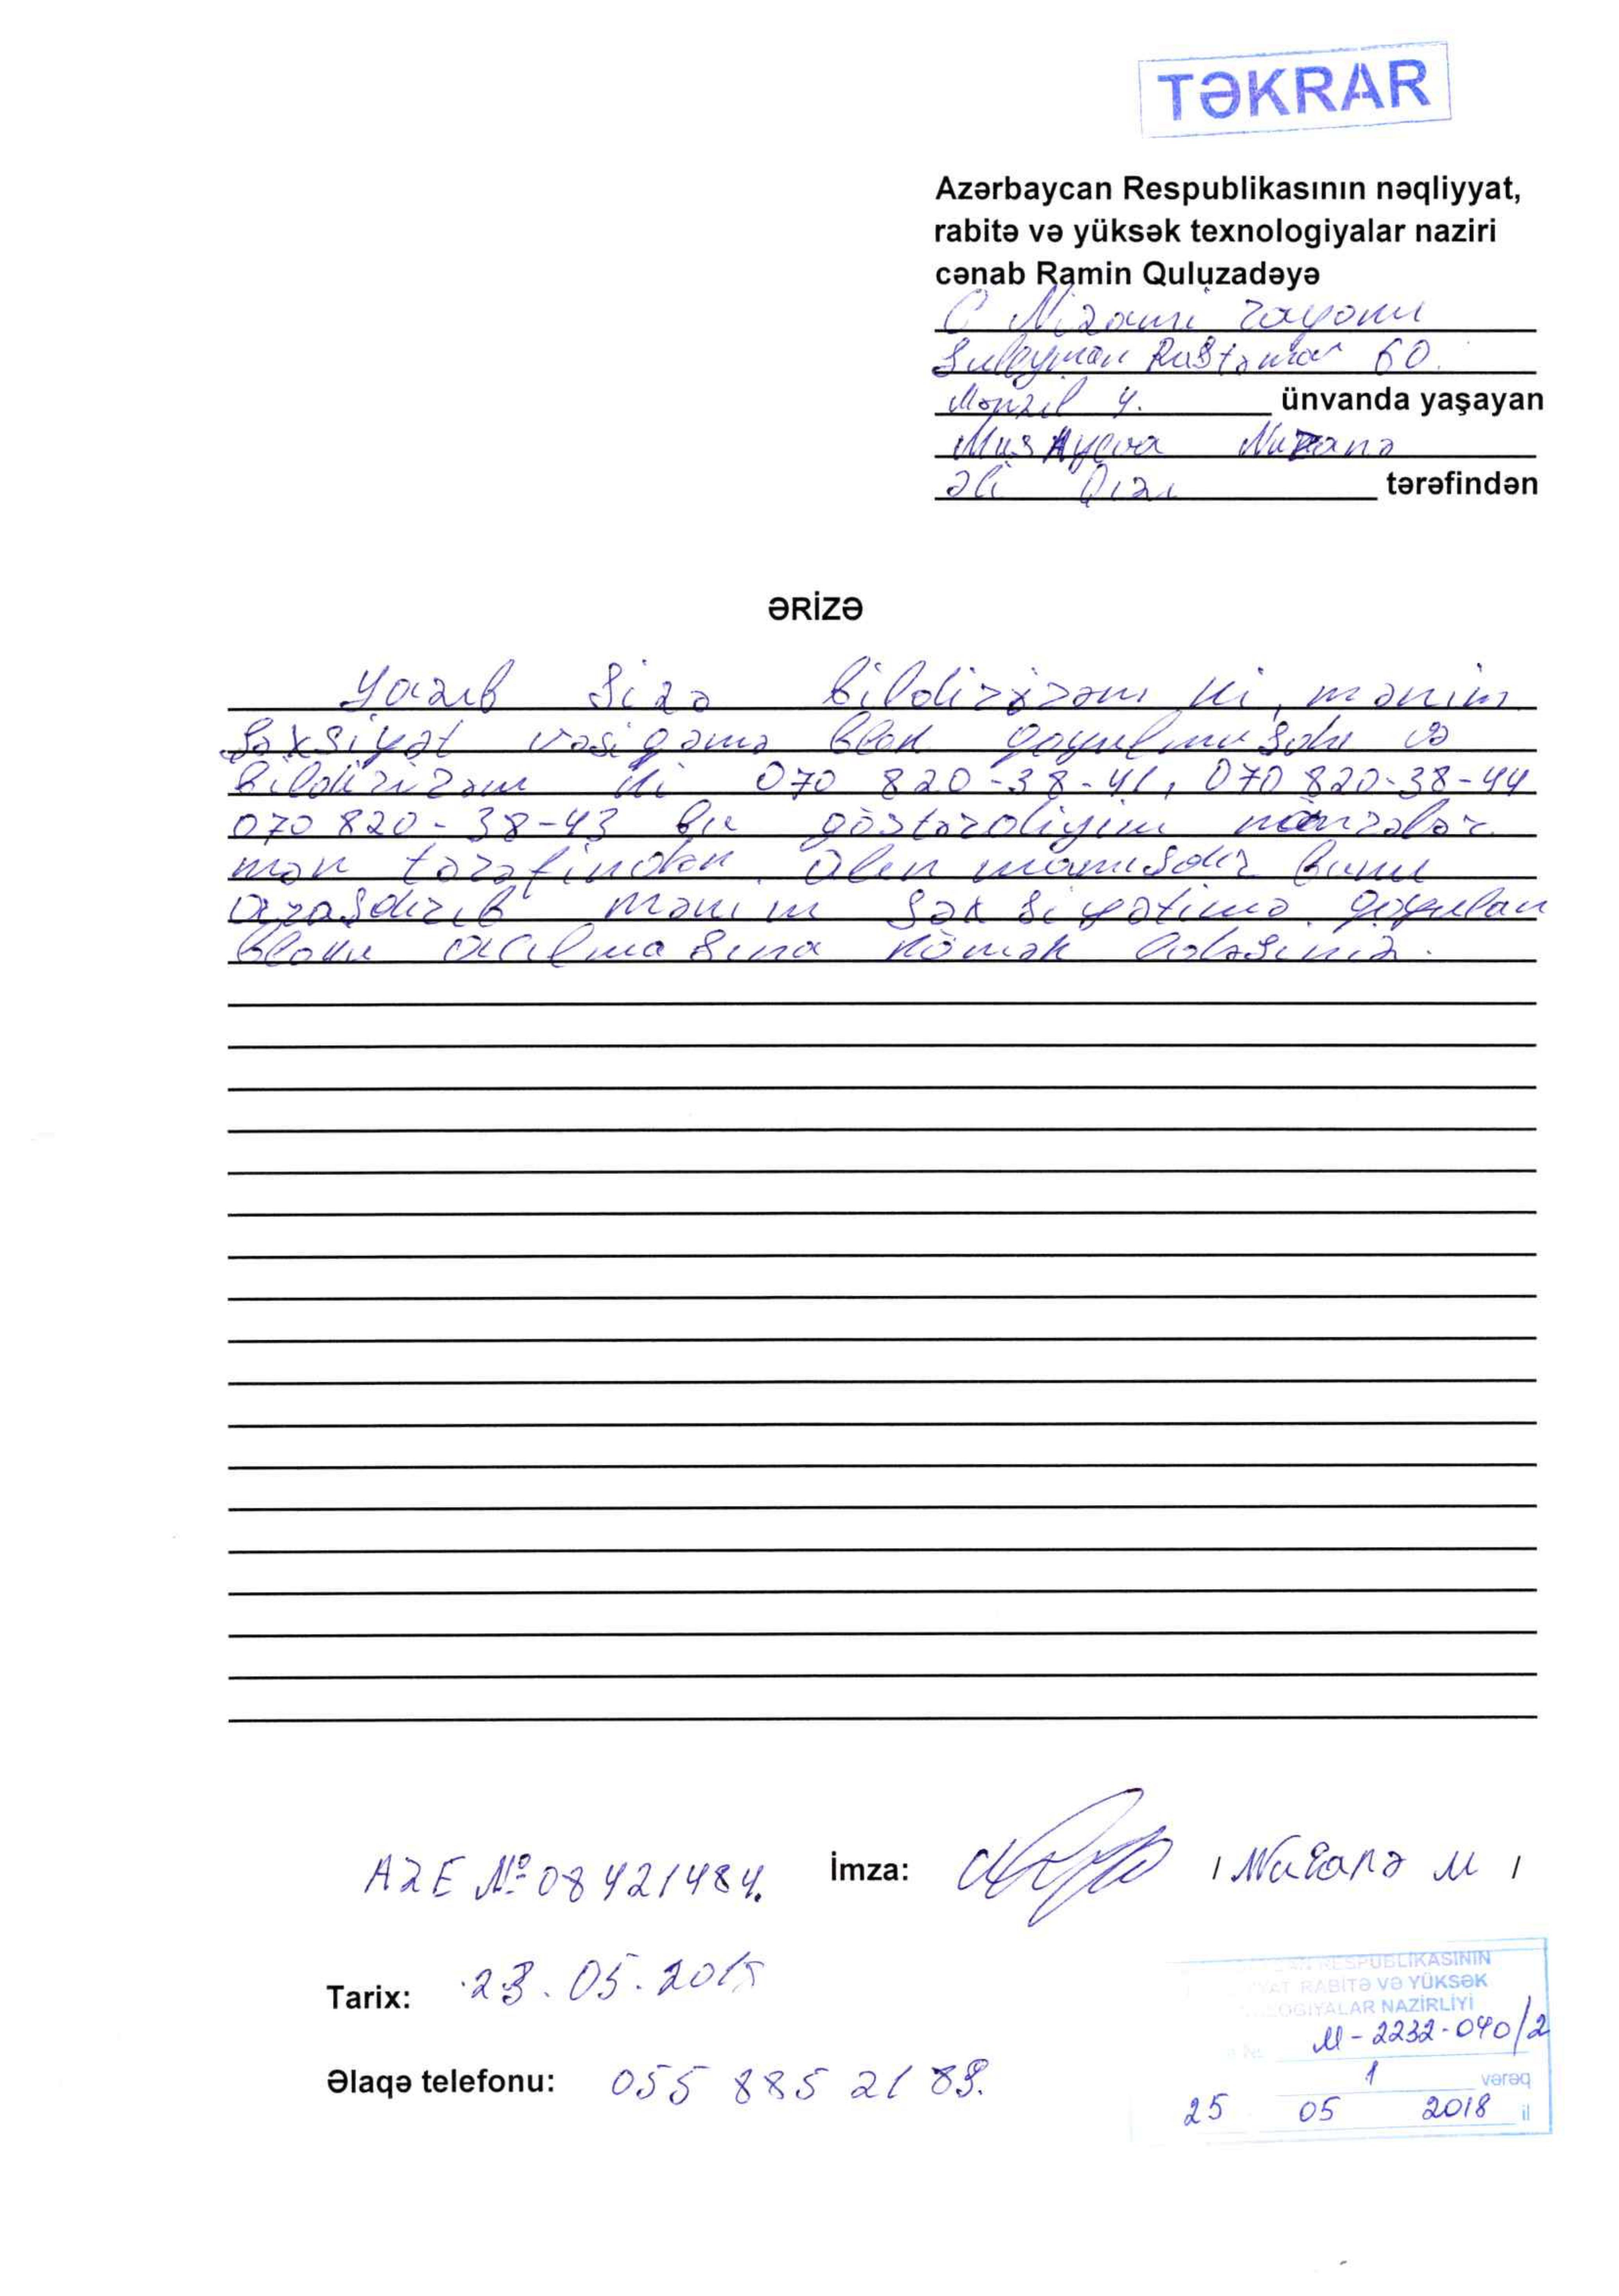 TƏKRAR
Azərbaycan Respublikasının nəqliyyat,
rabitə və yüksək texnologiyalar naziri
cənab Ramin Quluzadəyə
Nizami rayonu
Suleyman Rustəmov 60.
Mənzil 4. ünvanda yaşayan
Nuranə
Əli Qızı tərəfindən
ƏRİZƏ
Yazıb Sizə bildirirəm ki, mənim
Şəxsiyət vəsiqəmə blok qoyulmuşdu və
bildirirəm ki 070 820-38-41, 070 820-38-44
070 820-38-43 bu göstərdiyim nömrələr
mən tərəfindən alınmamışdır bunu
araşdırıb mənim şəxsiyətimə qoyulan
bloku açılmasına kömək edəsiniz.
AZE № 08421484. İmza: Nuranə M
Tarix: 23.05.2018
Əlaqə telefonu: 055 885 21 89.
RESPUBLİKASININ
RABİTƏ VƏ YÜKSƏK
NAZİRLİYİ
M-2232-040/2
1 vərəq
25 05 2018 il